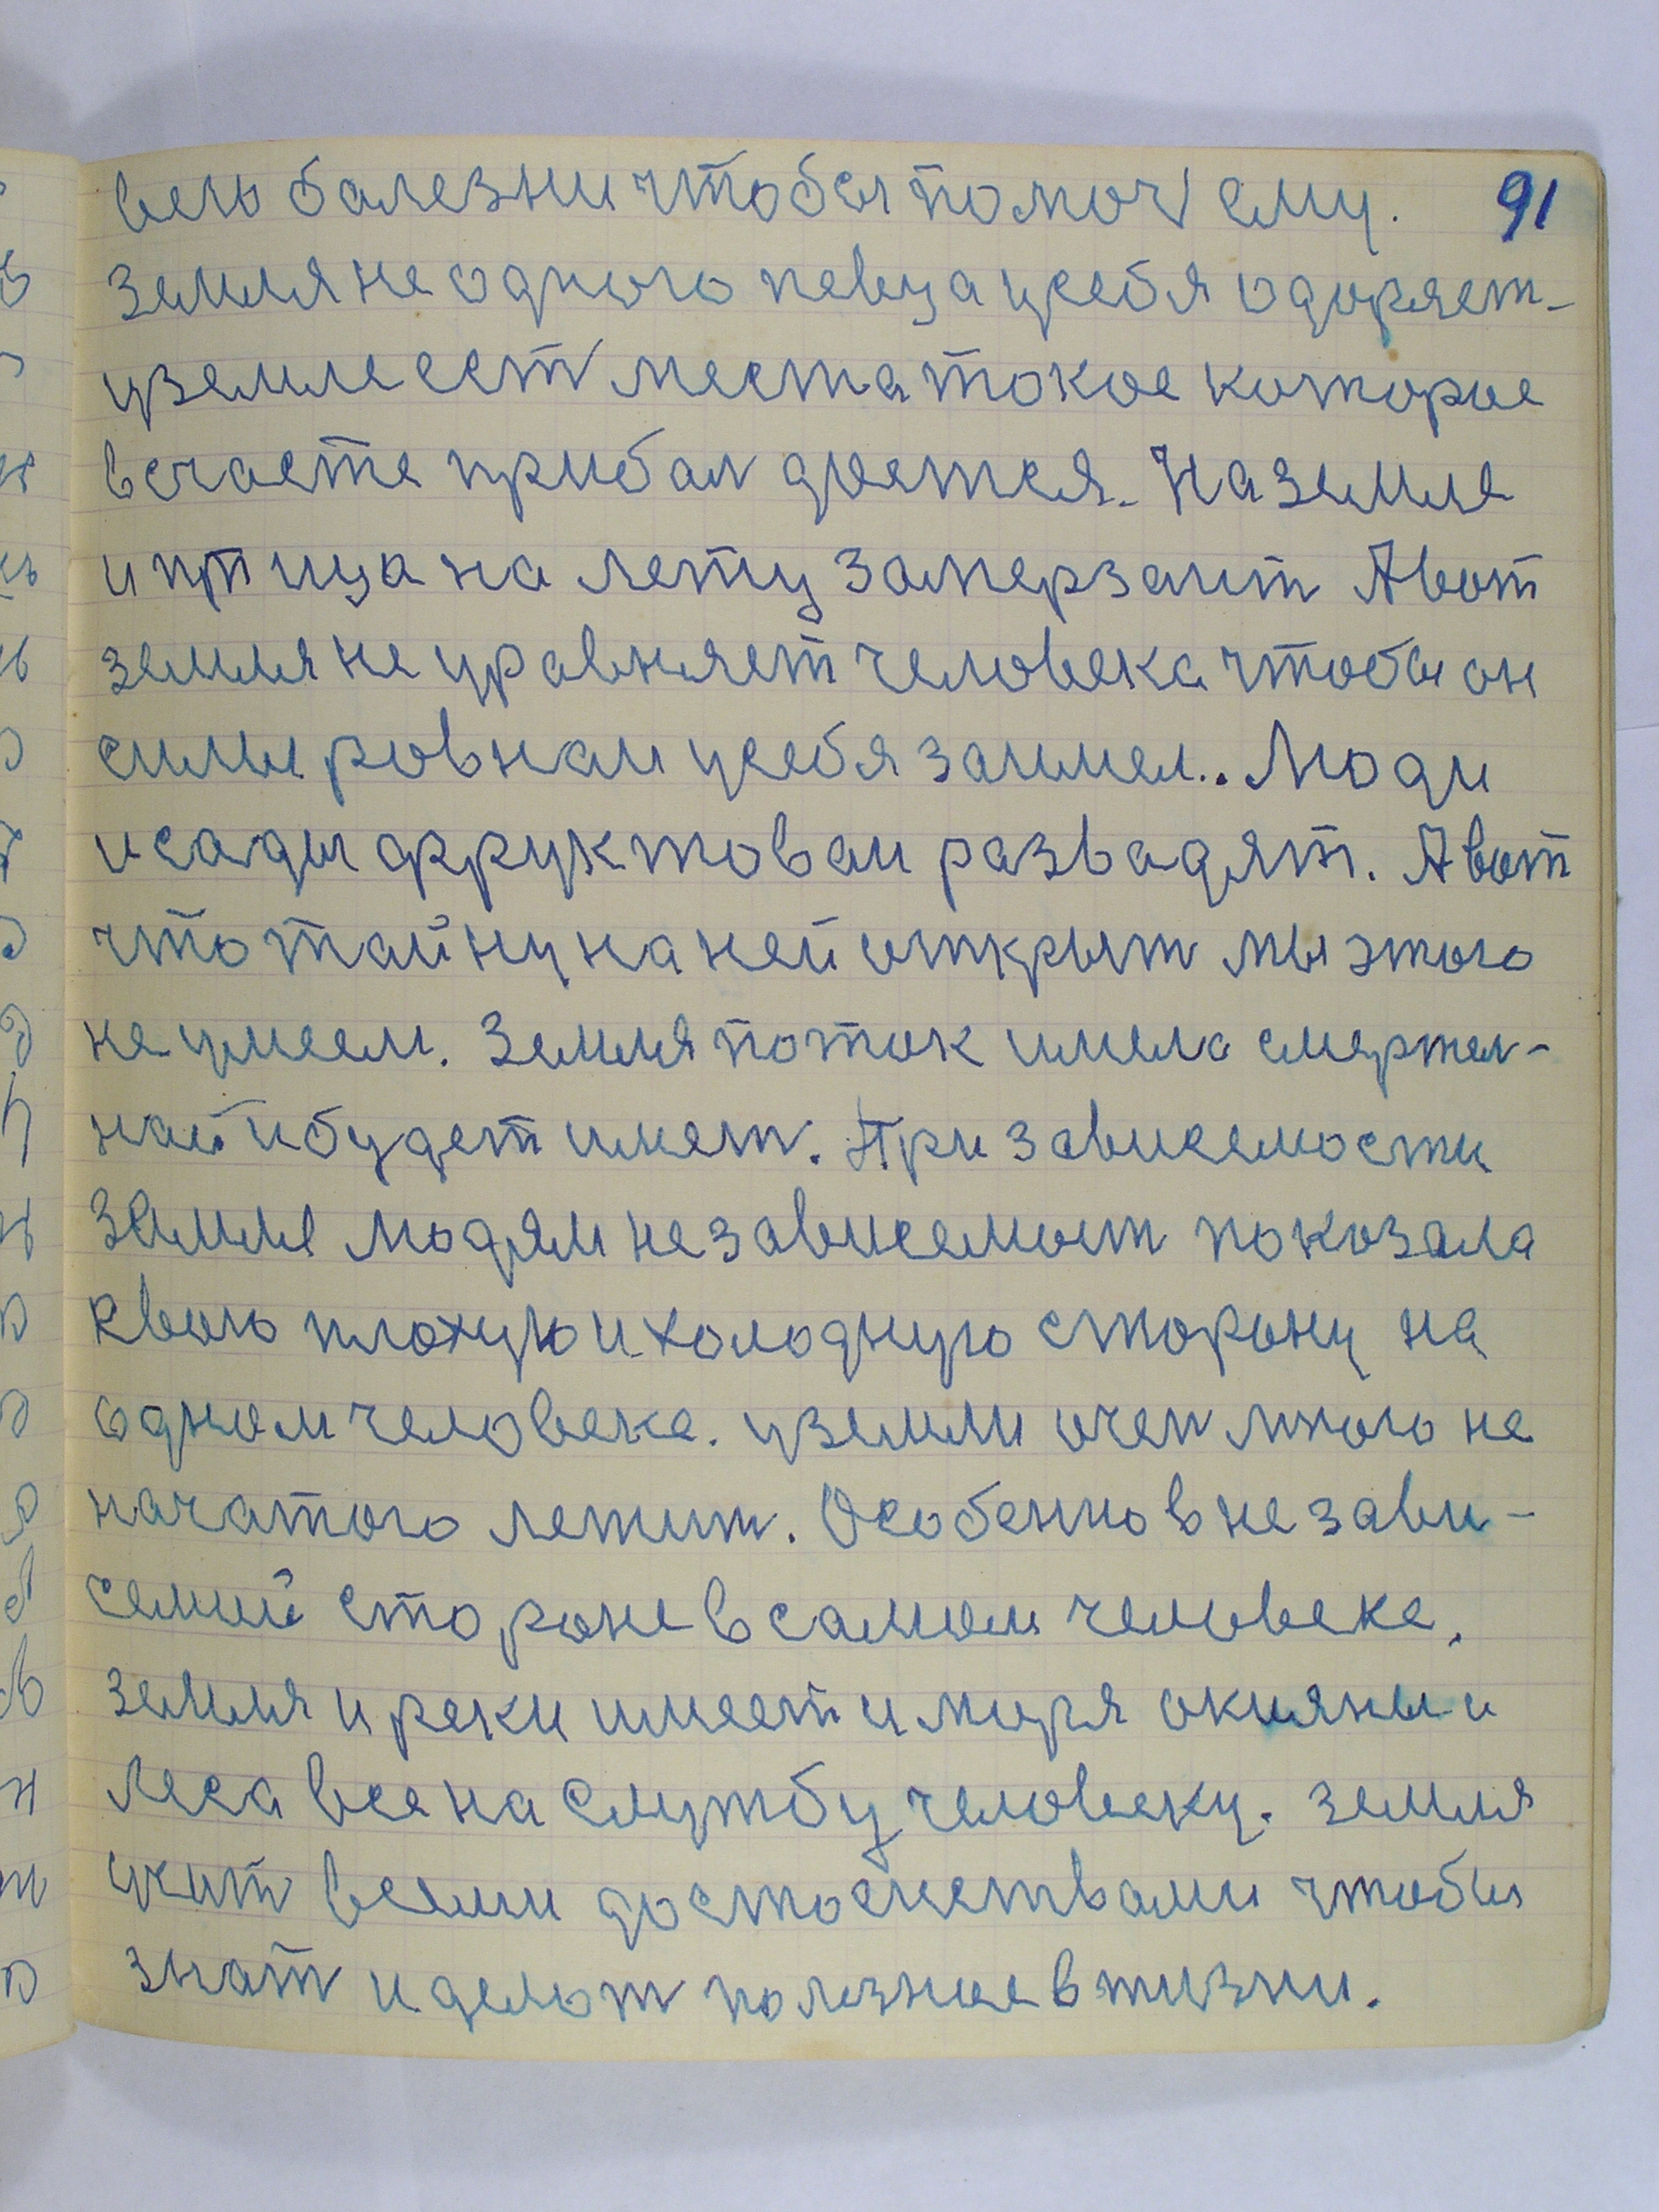 91
всю балезни чтобы помоч ему.
Земля не одного певца у себя одоряет-
у земле ест места токое которое
в счасте прибал дюется. На земле
и птица на лету замерзаит А вот
земля не уравняет человека чтобы он
силы ровнаи у себя заимел.. Люди
и сады фруктоваи развадят. А вот
что тайну на ней открыт мы этого
не умеем. Земля поток имела смертел-
най и будет имет. При зависемости
Земля людям незовисемост покозала
свою плохую и холодную сторону на
одном человеке. у земли очен много не
начатого лежит. Особенно в незави-
семий стороне в самом человеке.
земля и реки имеет и моря окияны и
леса все на службу человеку. земля
учит всеми достоенствами чтобы
знат и делот полезное в жизни.